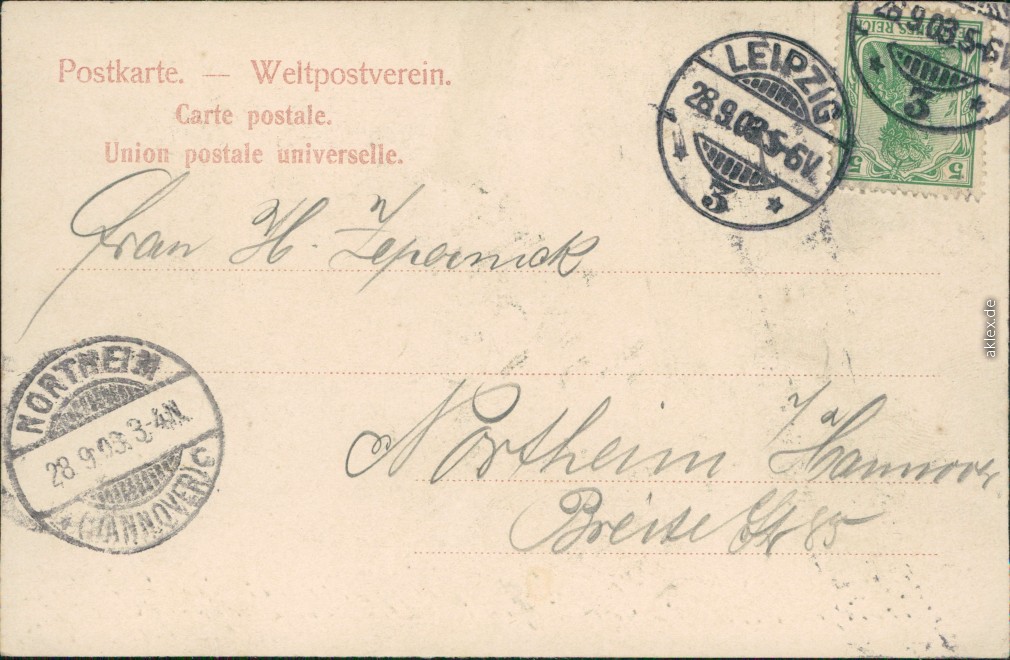 Postkarte. — Weltpostverein.
Carte postale.
Union postale universelle.
LEIPZIG
28.9.03.5-6V.
3
28.9.03.5-6V.
3
REICH
5
Frau H. Jepernick
NORTHEIM
28.9.03.3-4N.
(HANNOVER) C
Northeim / Hannover
Breite Str 85
aklex.de